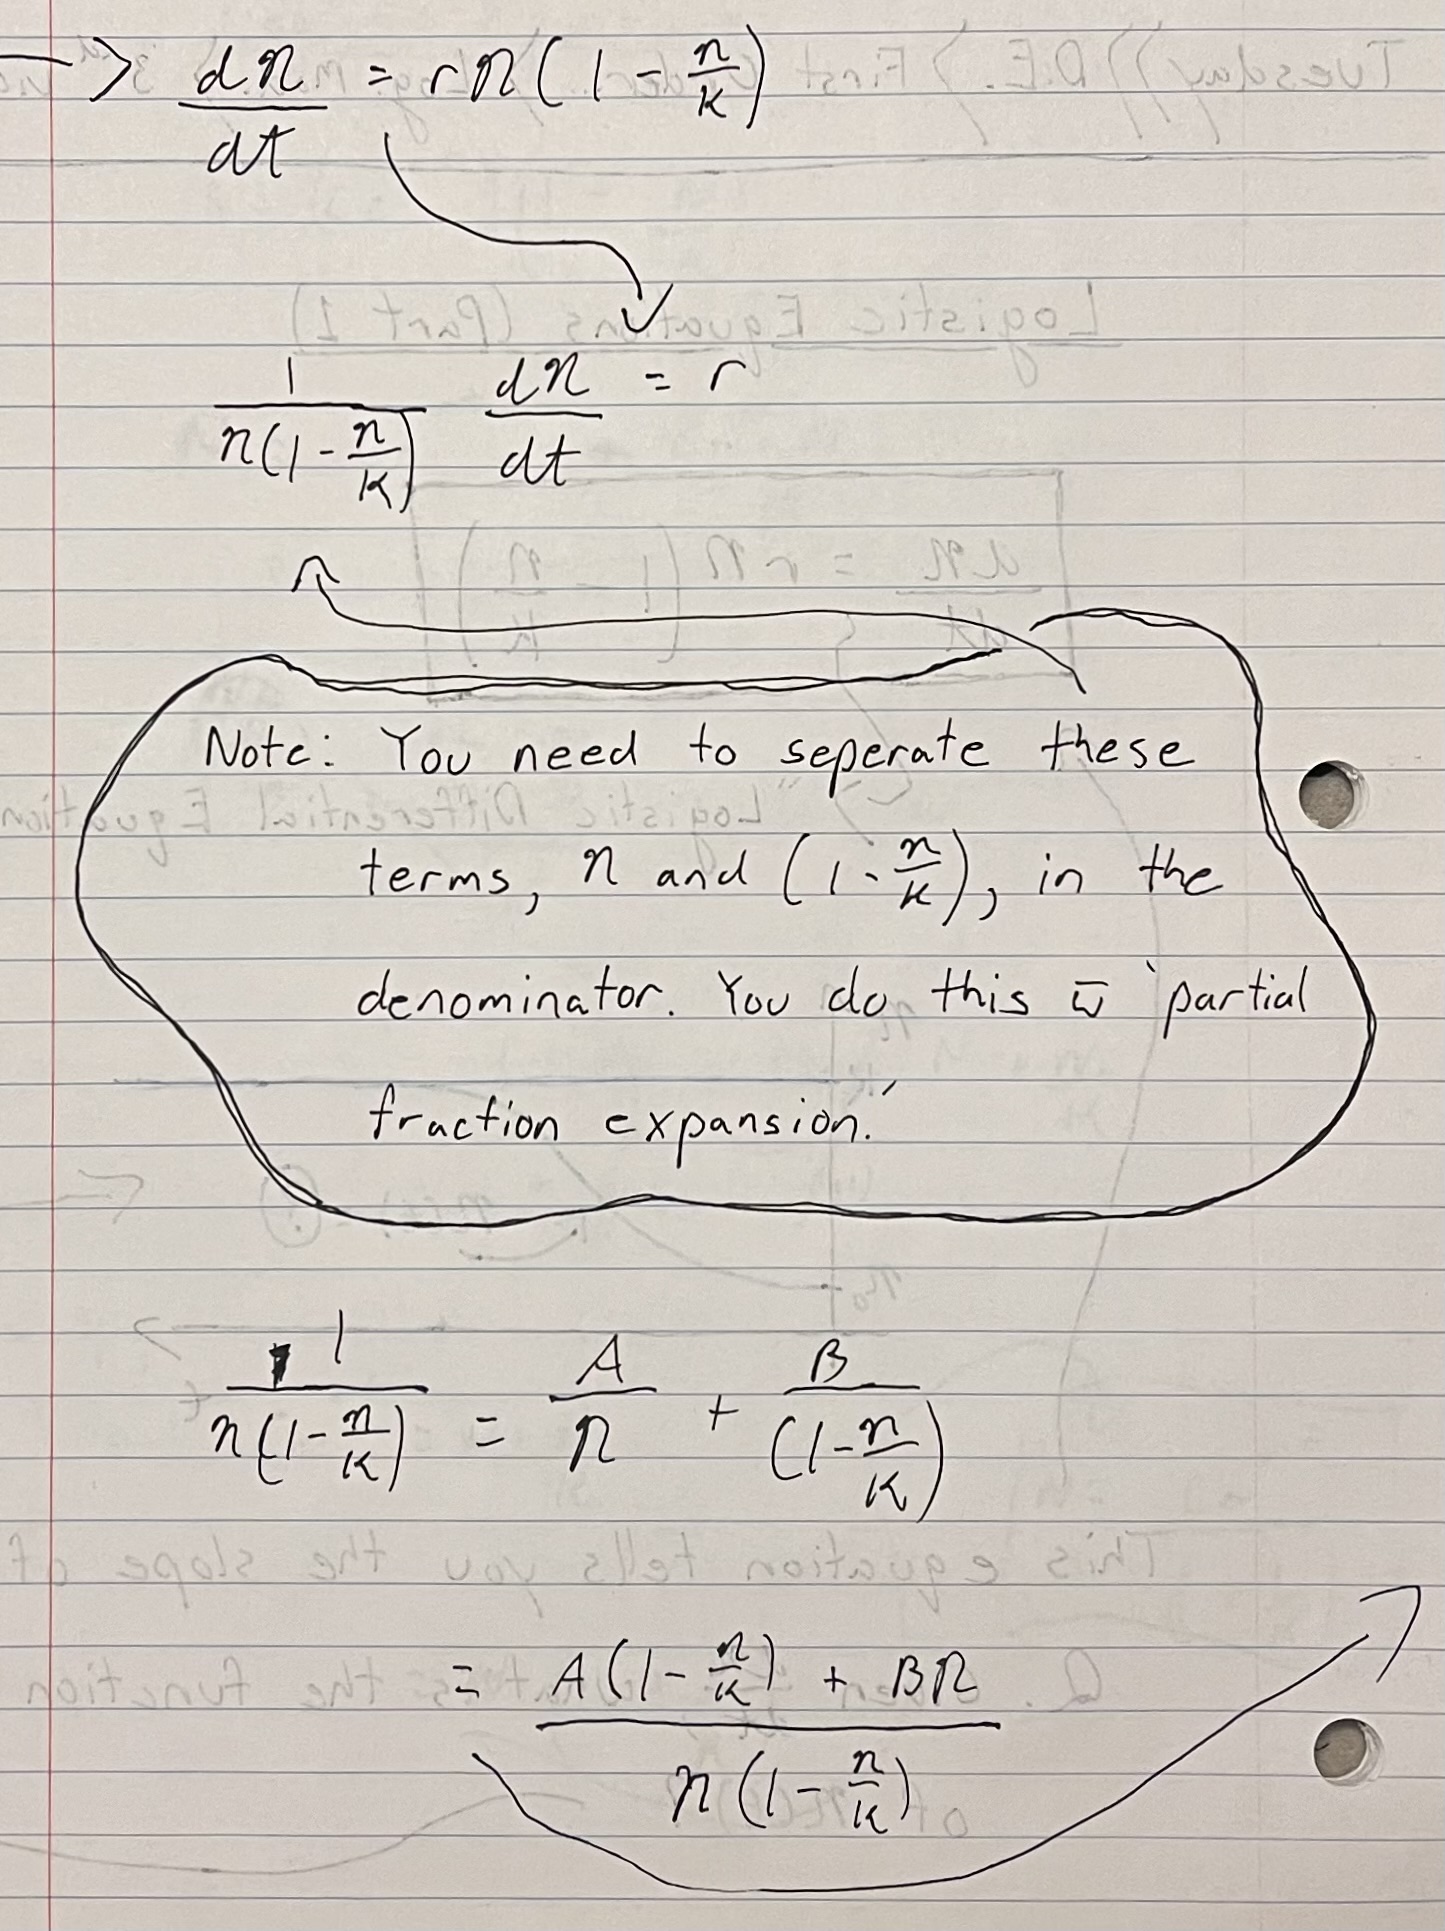 → dn/dt = rn(1 - n/k)
1/(n(1 - n/k)) dn/dt = r
Note: You need to seperate these
terms, n and (1 - n/k), in the
denominator. You do this w̄ ‵partial
fraction expansion.′
1/(n(1 - n/k)) = A/n + B/(1 - n/k)
= (A(1 - n/k) + Bn)/(n(1 - n/k))